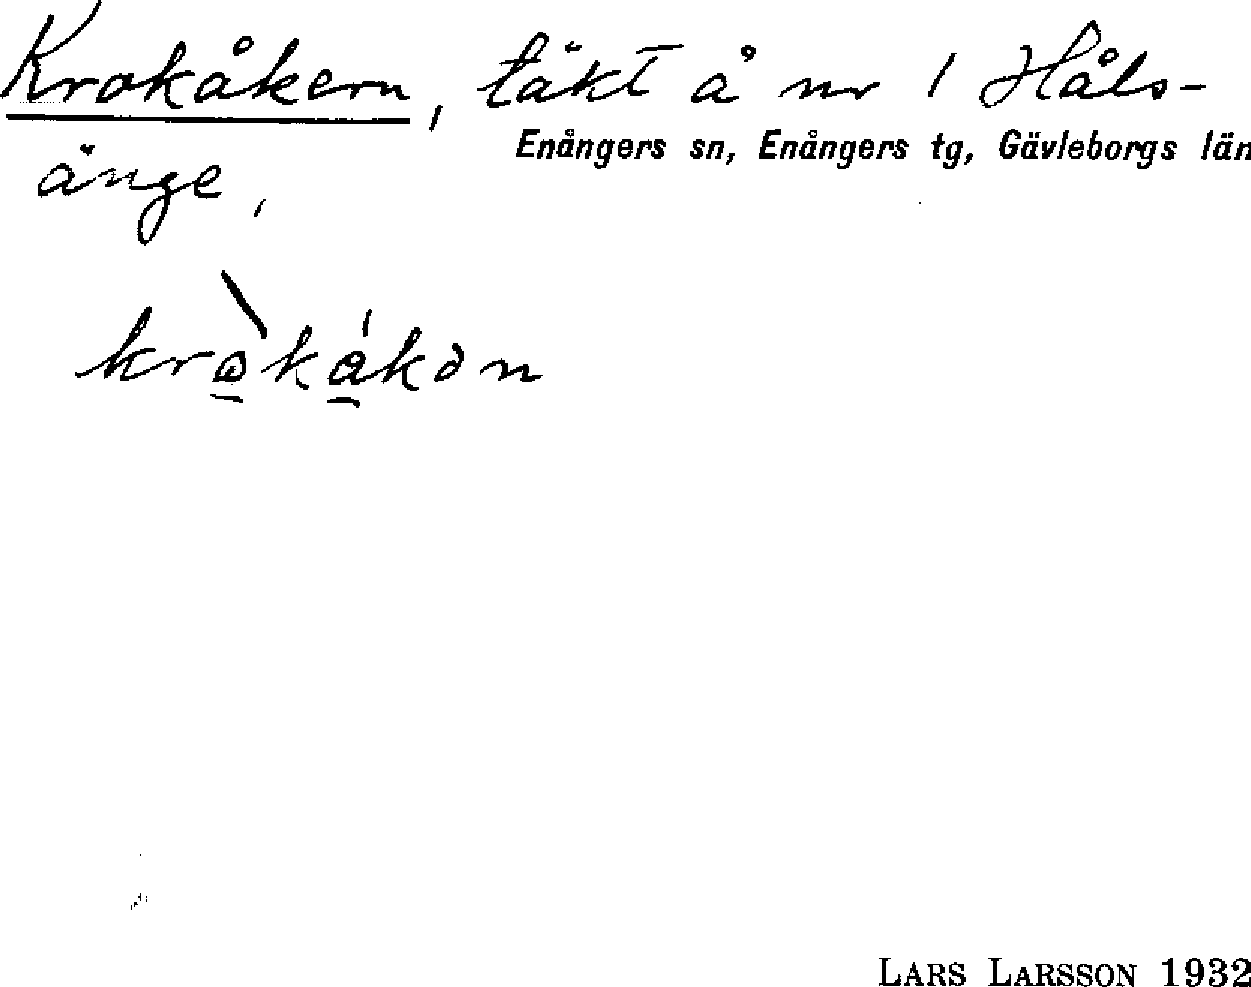 Krokåkern, täkt å nr 1 Håls-
Enångers sn, Enångers tg, Gävleborgs län
änge,
kròkákən
LARS LARSSON 1932